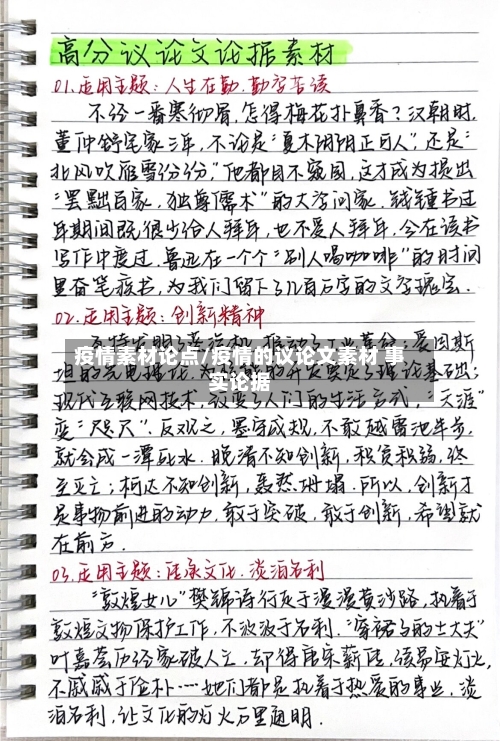 高分议论文论据素材
01.适用主题：人生在勤，勤学苦读
不经一番寒彻骨，怎得梅花扑鼻香？汉朝时，
董仲舒宅家三年，不论是“夏木阴阴正可人”，还是“
北风吹雁雪纷纷，”他都目不窥园，这才成为提出
“罢黜百家，独尊儒术”的大学问家．钱锺书过
年期间既很少给人拜年，也不爱人拜年，全在读书
写作中度过．鲁迅在一个个“别人喝咖啡”的时间
里奋笔疾书，为我们留下了几百万字的文学瑰宝．
02.适用主题：创新精神
疫情素材论点/疫情的议论文素材 事
实论据
现代互联网技术，改变了人们的生活方式，“天涯”
变“咫尺”．反观之，墨守成规，不敢越雷池半步，
就会成一潭死水．晚清不知创新，积贫积弱，终
至灭亡；柯达不知创新，轰然坍塌．所以，创新才
是事物前进的动力，敢于突破，敢于创新，希望就
在前方．
03.适用主题：传承文化，淡泊名利
“敦煌女儿”樊锦诗行走于漫漫黄沙路，执着于
敦煌文物保护工作，不汲汲于名利．“穿裙子的士大夫”
叶嘉莹历经家破人亡，却得唐宋薪传，续易安灯火，
不戚戚于俭朴……她们都是执着于热爱的事业，淡
泊名利，让文化的灯火万里通明．